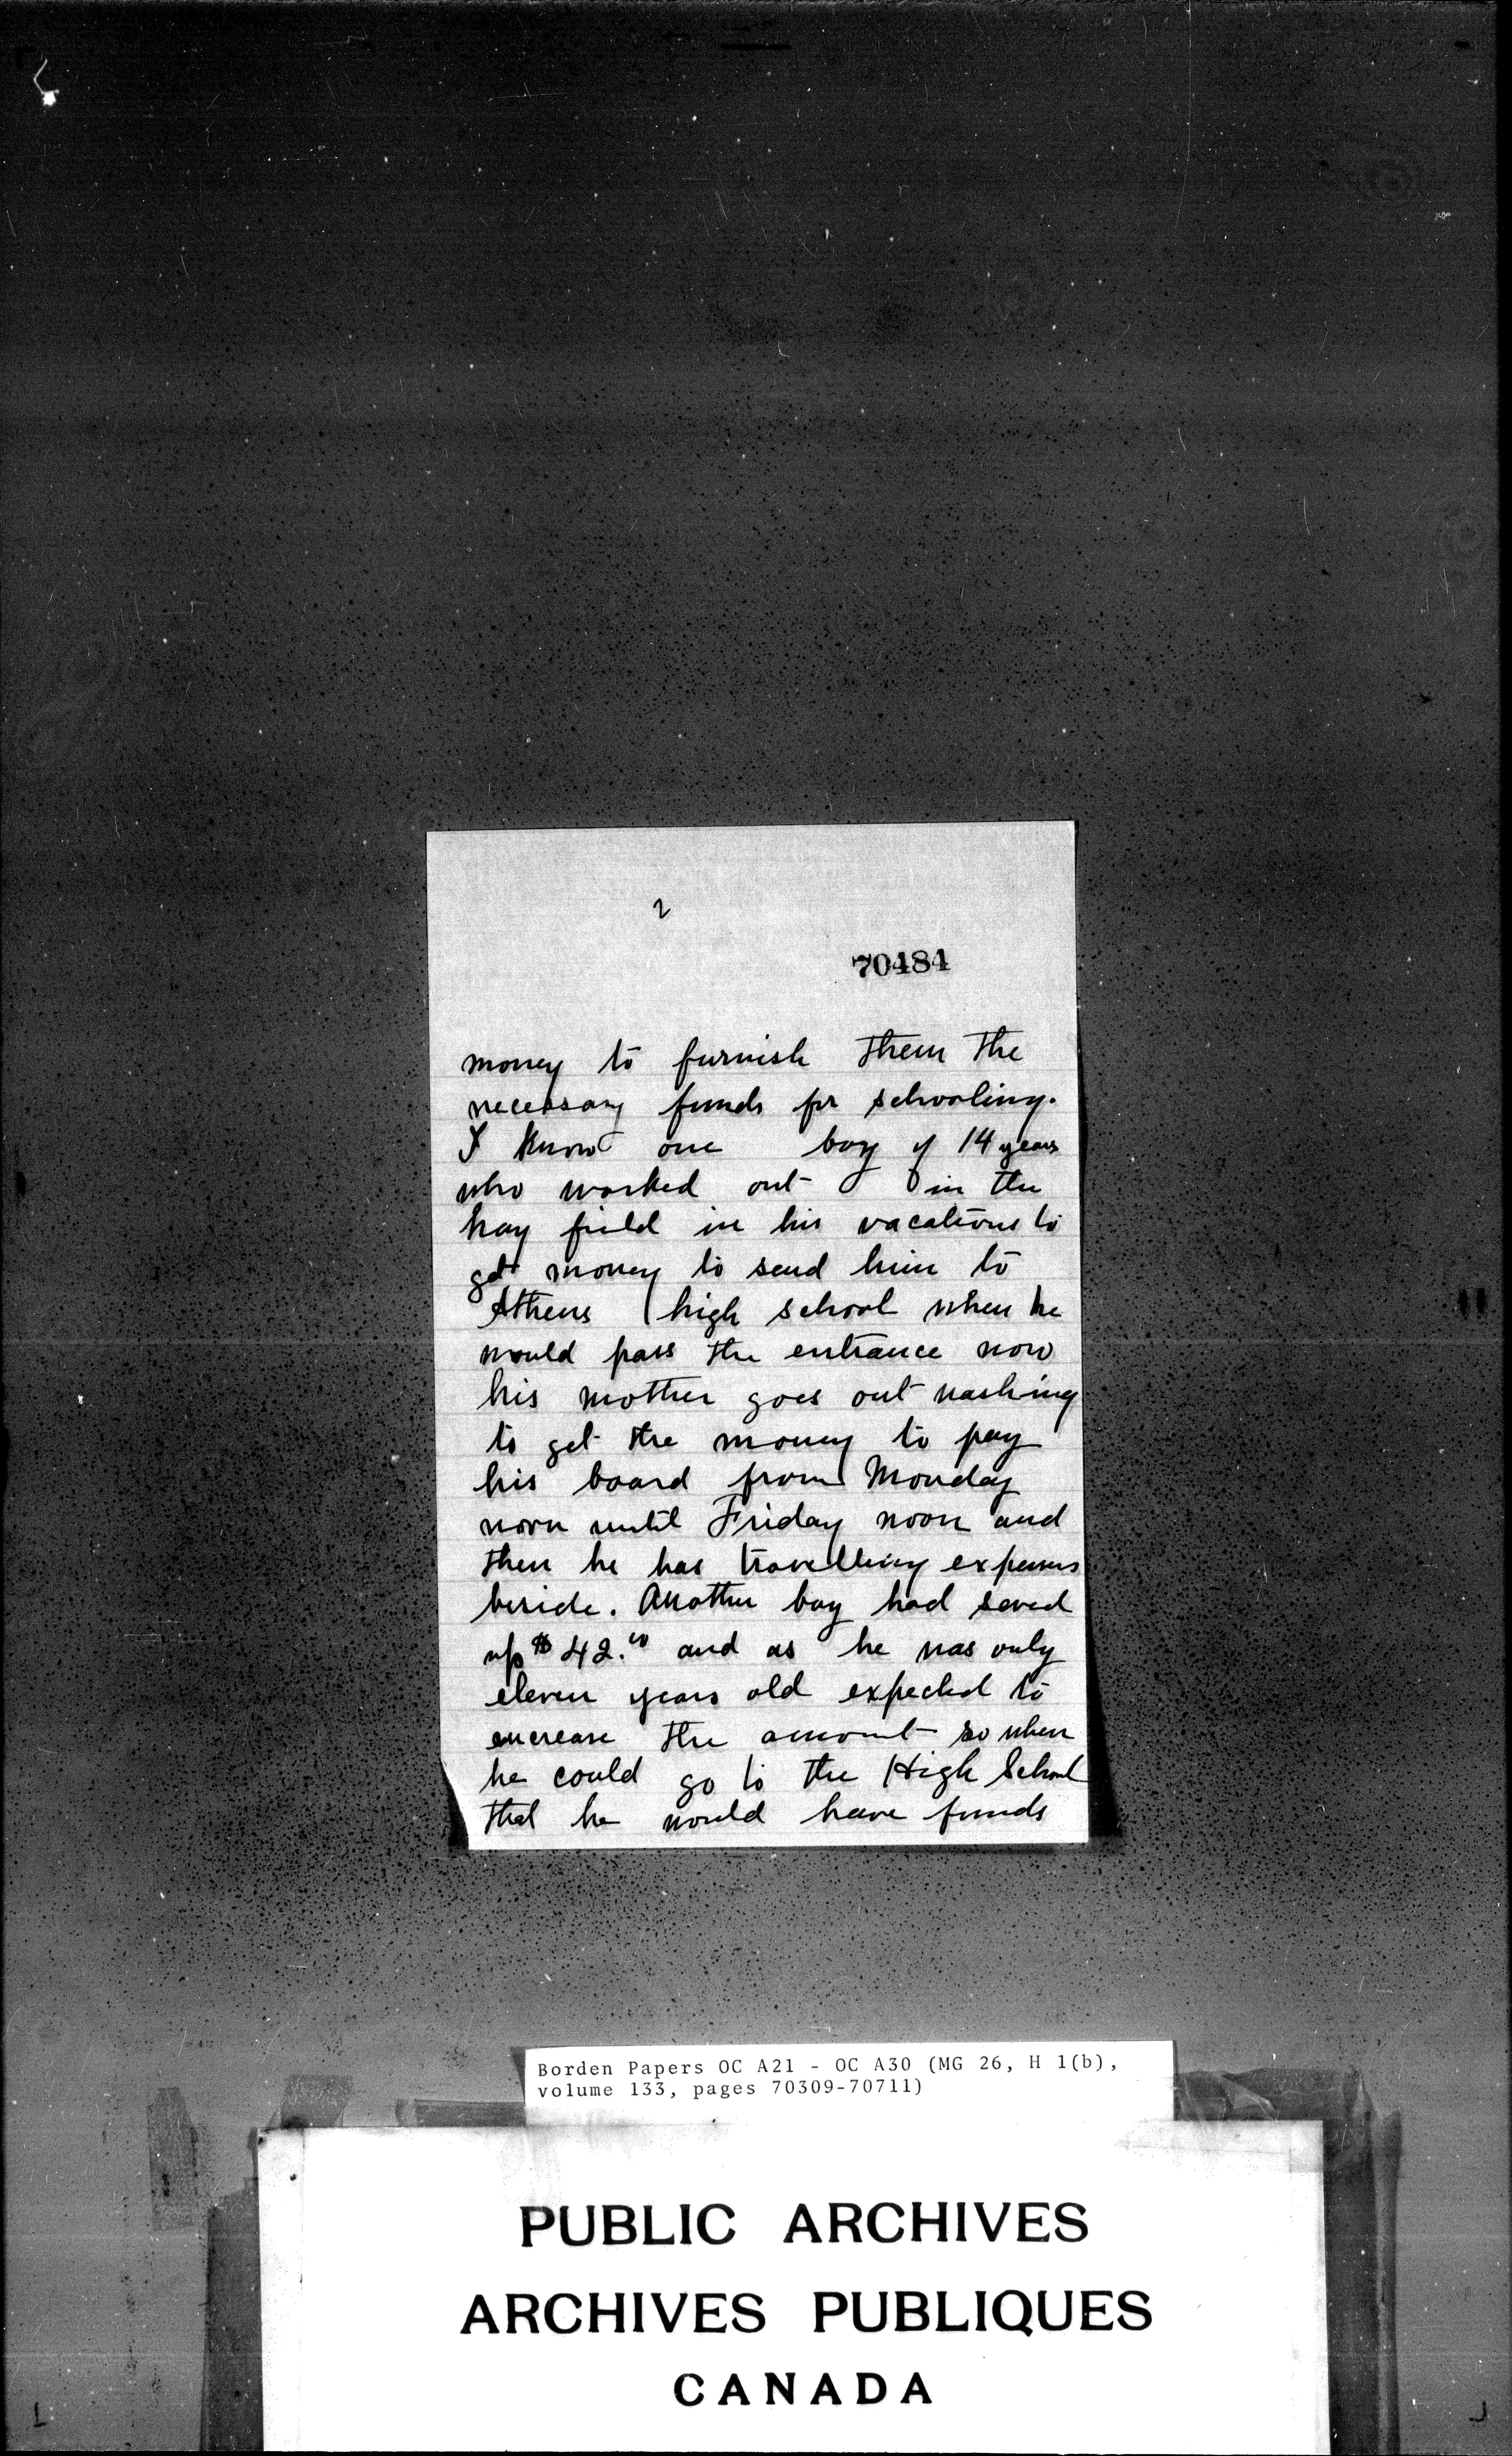 2
70484
money to furnish them the
necessary funds for schooling.
I know one boy of 14 years
who worked out in the
hay field in his vacations to
get money to send him to
Athens high school when he
would pass the entrance now
his mother goes out washing
to get the money to pay
his board from Monday
noon until Friday noon and
then he has travelling expenses
beside. Another boy had saved
up $42.00 and as he was only
eleven years old expected to
encrease the amount so when
he could go to the High School
that he would have funds
Borden Papers OC A21 - OC A30 (MG 26, H 1(b),
volume 133, pages 70309-70711)
PUBLIC ARCHIVES
ARCHIVES PUBLIQUES
CANADA